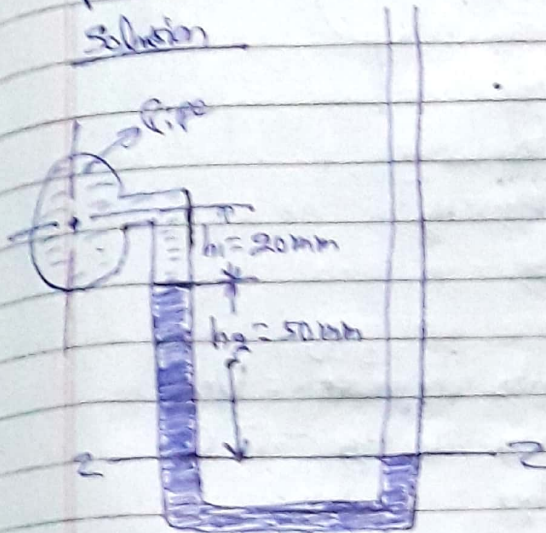 Solution
Pipe
h₁ = 20mm
h₂ = 50mm
Z Z